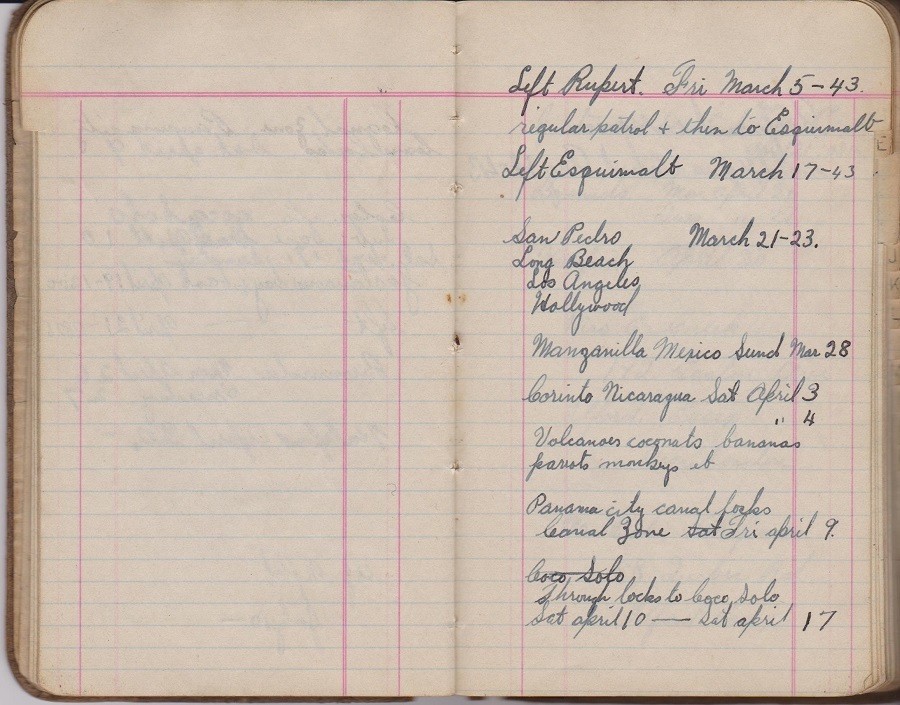 Left Rupert. Fri March 5-43.
regular patrol + then to Esquimalt
Left Esquimalt March 17-43
San Pedro March 21-23.
Long Beach
Los Angeles
Hollywood
Manzanilla Mexico Sund Mar 28
Corinto Nicaragua Sat April 3
" 4
Volcanoes coconuts bananas
parrots monkeys et
Panama city canal locks
Canal Zone Sat Fri april 9.
Coco Solo
Through locks to Coco Solo
Sat april 10 — Sat april 17